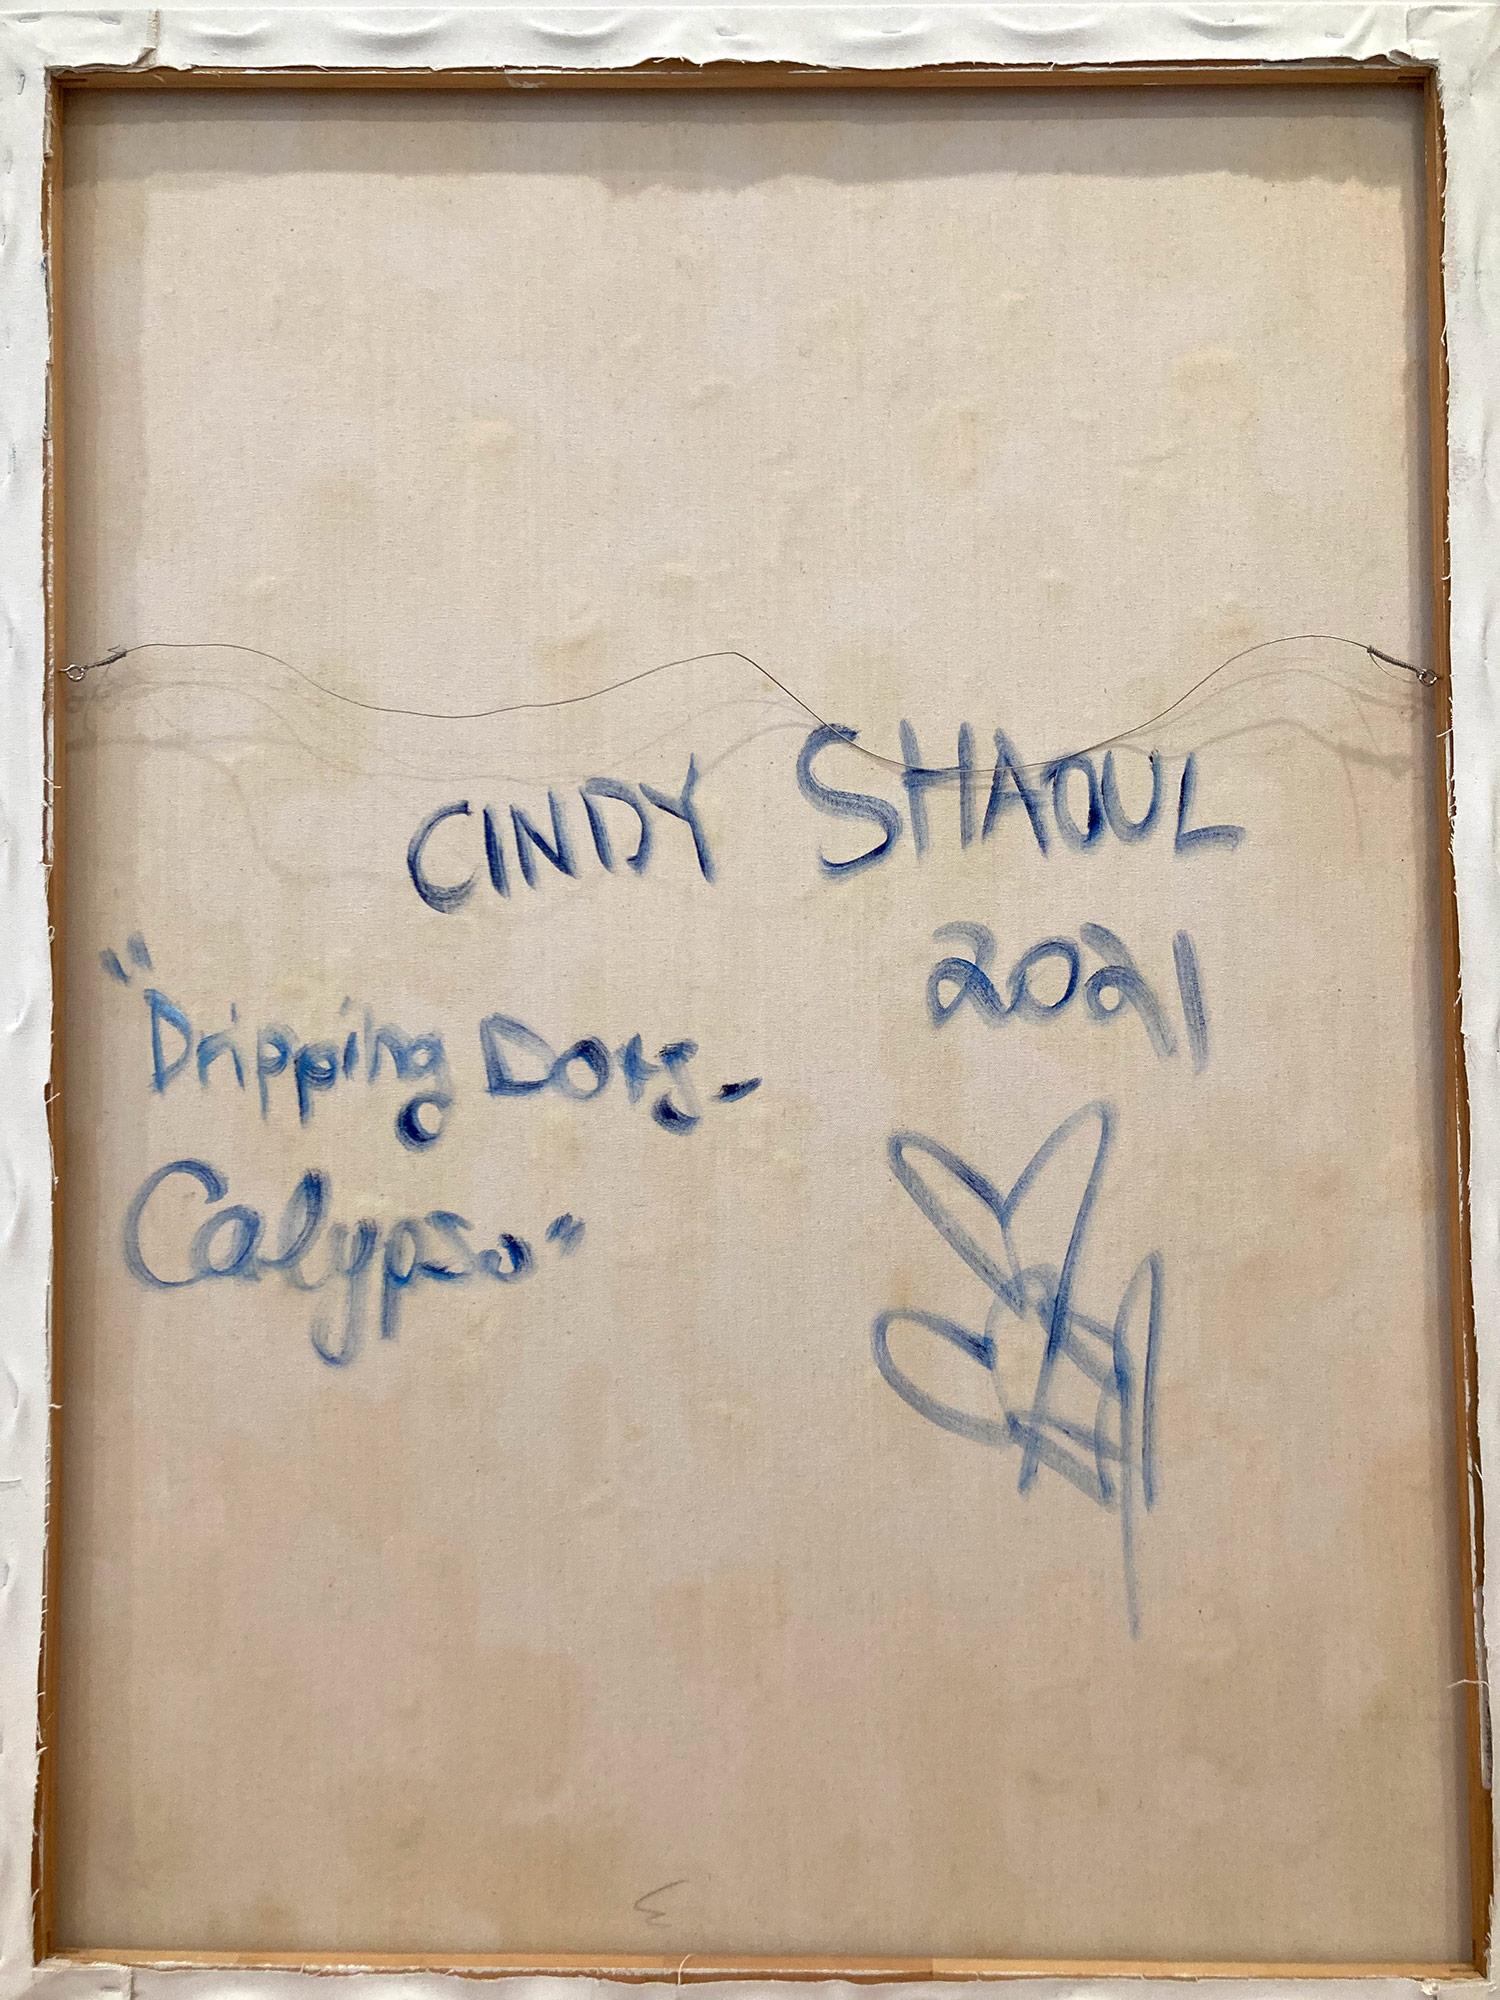 CINDY SHAOUL
2021
"Dripping Dots-
Calypso"